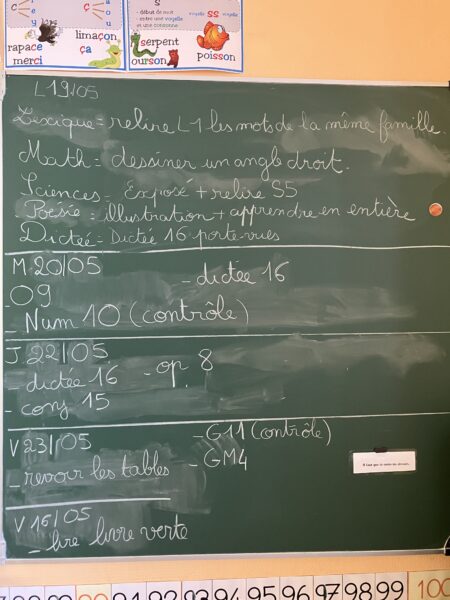 S
- début de mot
- entre une voyelle et une consonne
ss
rapace
merci
limaçon
ça
serpent
ourson
poisson
L 19/05
Lexique = relire L1 les mots de la même famille.
Math = dessiner un angle droit.
Sciences = Exposé + relire S5
Poésie = illustration + apprendre en entière
Dictée = Dictée 16 porte-vues
M 20/05
- dictée 16
O9
- Num 10 (contrôle)
J 22/05
- dictée 16 - op. 8
- conj 15
V 23/05
- G11 (contrôle)
- revoir les tables - GM4
V 16/05
- lire livre verte
92 93 94 95 96 97 98 99 100